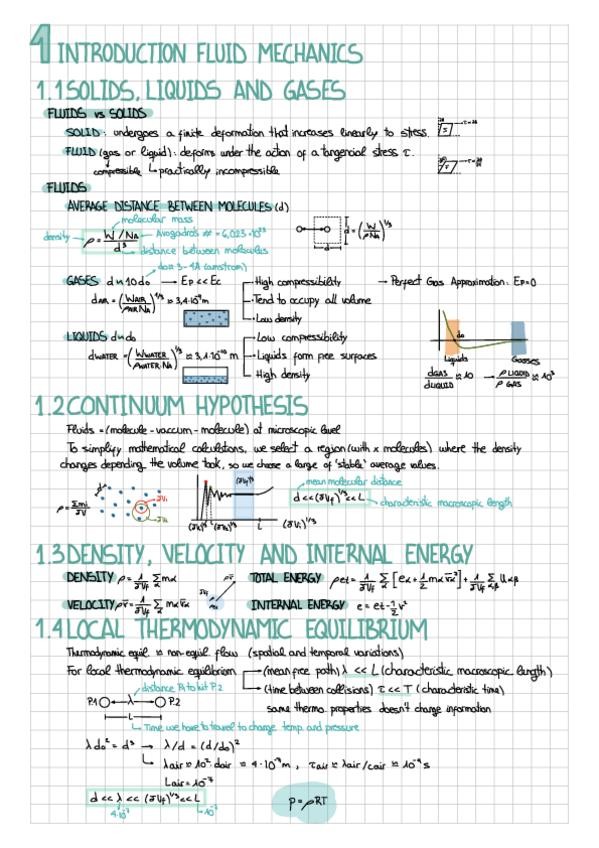 1 INTRODUCTION FLUID MECHANICS
1.1 SOLIDS, LIQUIDS AND GASES
FLUIDS vs SOLIDS
SOLID: undergoes a finite deformation that increases linearly to stress.
FLUID (gas or liquid): deforms under the action of a tangencial stress τ.
compressible ↳ practically incompressible
FLUIDS
AVERAGE DISTANCE BETWEEN MOLECULES (d)
molecular mass
density → ρ = W/NA / d³
Avogadro's # = 6,023·10²³
distance between molecules
d = (W/ρNA)^1/3
do ≈ 3-4A (amstrom)
GASES d ≈ 10do → Ep << Ec
High compressibility → Perfect Gas Approximation: Ep=0
dAIR = (WAIR/ρAIR NA)^1/3 ≈ 3,4·10⁻⁹m
Tend to occupy all volume
Low density
LIQUIDS d ≈ do
Low compressibility
dWATER = (WWATER/ρWATER NA)^1/3 ≈ 3,1·10⁻¹⁰ m
Liquids form free surfaces
High density
do
Liquids Gasses
dGAS/dLIQUID ≈ 10 → ρ LIQUID/ρ GAS ≈ 10³
1.2 CONTINUUM HYPOTHESIS
Fluids = (molecule - vaccum - molecule) at microscopic level
To simplify mathematical calculations, we select a region (with x molecules) where the density
changes depending the volume took, so we choose a large of 'stable' average values.
mean molecular distance
d << (δVf)^1/3 << L
characteristic macroscopic length
ρ = Σmi/δV
L (δVi)^1/3
1.3 DENSITY, VELOCITY AND INTERNAL ENERGY
DENSITY ρ = 1/δVf Σα mα
TOTAL ENERGY ρet = 1/δVf Σα [eα + 1/2 mα v̄α²] + 1/δVf Σ eαβ
VELOCITY ρv̄ = 1/δVf Σα mα v̄α
INTERNAL ENERGY e = et - 1/2 v²
1.4 LOCAL THERMODYNAMIC EQUILIBRIUM
Thermodynamic equil. ≈ non-equil. flow (spatial and temporal variations)
For local thermodynamic equilibrium
(mean free path) λ << L (characteristic macroscopic length)
(time between collisions) τ << T (characteristic time)
distance P.1 to hit P.2
P.1 λ P.2
L
same thermo. properties doesn't change information
Time we have to travel to change temp. and pressure
λ do² = d³ → λ/d = (d/do)²
λair ≈ 10²·dair ≈ 4·10⁻⁷m, τair ≈ λair/cair ≈ 10⁻⁹s
d << λ << (δVf)^1/3 << L
p = ρRT